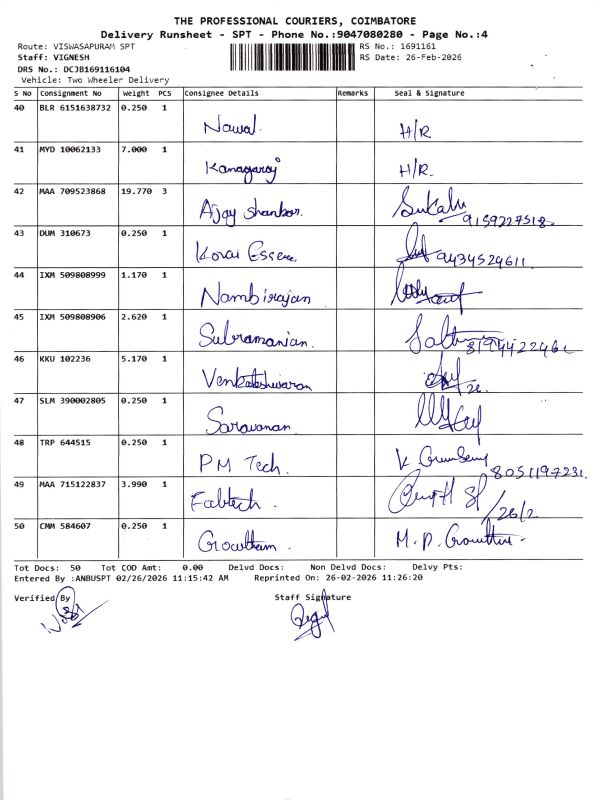 THE PROFESSIONAL COURIERS, COIMBATORE
Delivery Runsheet - SPT - Phone No.:9047080280 - Page No.:4
Route: VISWASAPURAM SPT RS No.: 1691161
Staff: VIGNESH RS Date: 26-Feb-2026
DRS No.: DCJB169116104
Vehicle: Two Wheeler Delivery
S No Consignment No Weight PCS Consignee Details Remarks Seal & Signature
40 BLR 6151638732 0.250 1 Nawal. H/R
41 MYD 10062133 7.000 1 Kanagaraj H/R.
42 MAA 709523868 19.770 3 Ajay Shankar. 9159227518
43 DUM 310673 0.250 1 Korai Essere. 9434529611.
44 IXM 509808999 1.170 1 Nambirajan
45 IXM 509808906 2.620 1 Subramanian.
46 KKU 102236 5.170 1 Venkateshwaran
47 SLM 390002805 0.250 1 Saravanan.
48 TRP 644515 0.250 1 PM Tech. 8051197231.
49 MAA 715122837 3.990 1 Fabtech. /26/2
50 CMM 584607 0.250 1 Growtham. M. P.
Tot Docs: 50 Tot COD Amt: 0.00 Delvd Docs: Non Delvd Docs: Delvy Pts:
Entered By :ANBUSPT 02/26/2026 11:15:42 AM Reprinted On: 26-02-2026 11:26:20
Verified By Staff Signature